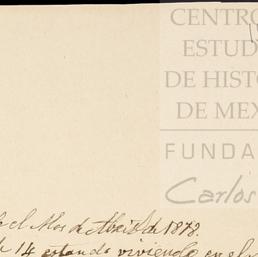 CENTRO
ESTUD
DE HISTO
DE MEX
FUNDA
Carlos
el Mes de Abril de 1878.
14 estando viviendo en el